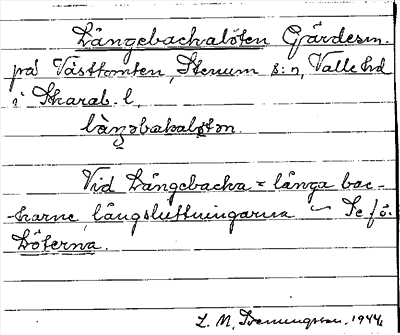 Längebackalöten Gärdesn.
på Västtomten, Stenum s:n, Valle hd
i Skarab. l.
làŋəbakalø̀tən.
Vid Längebacka = långa bac-
karne, långsluttningarna – Se fö.
Löterna.
L. M. 1944.